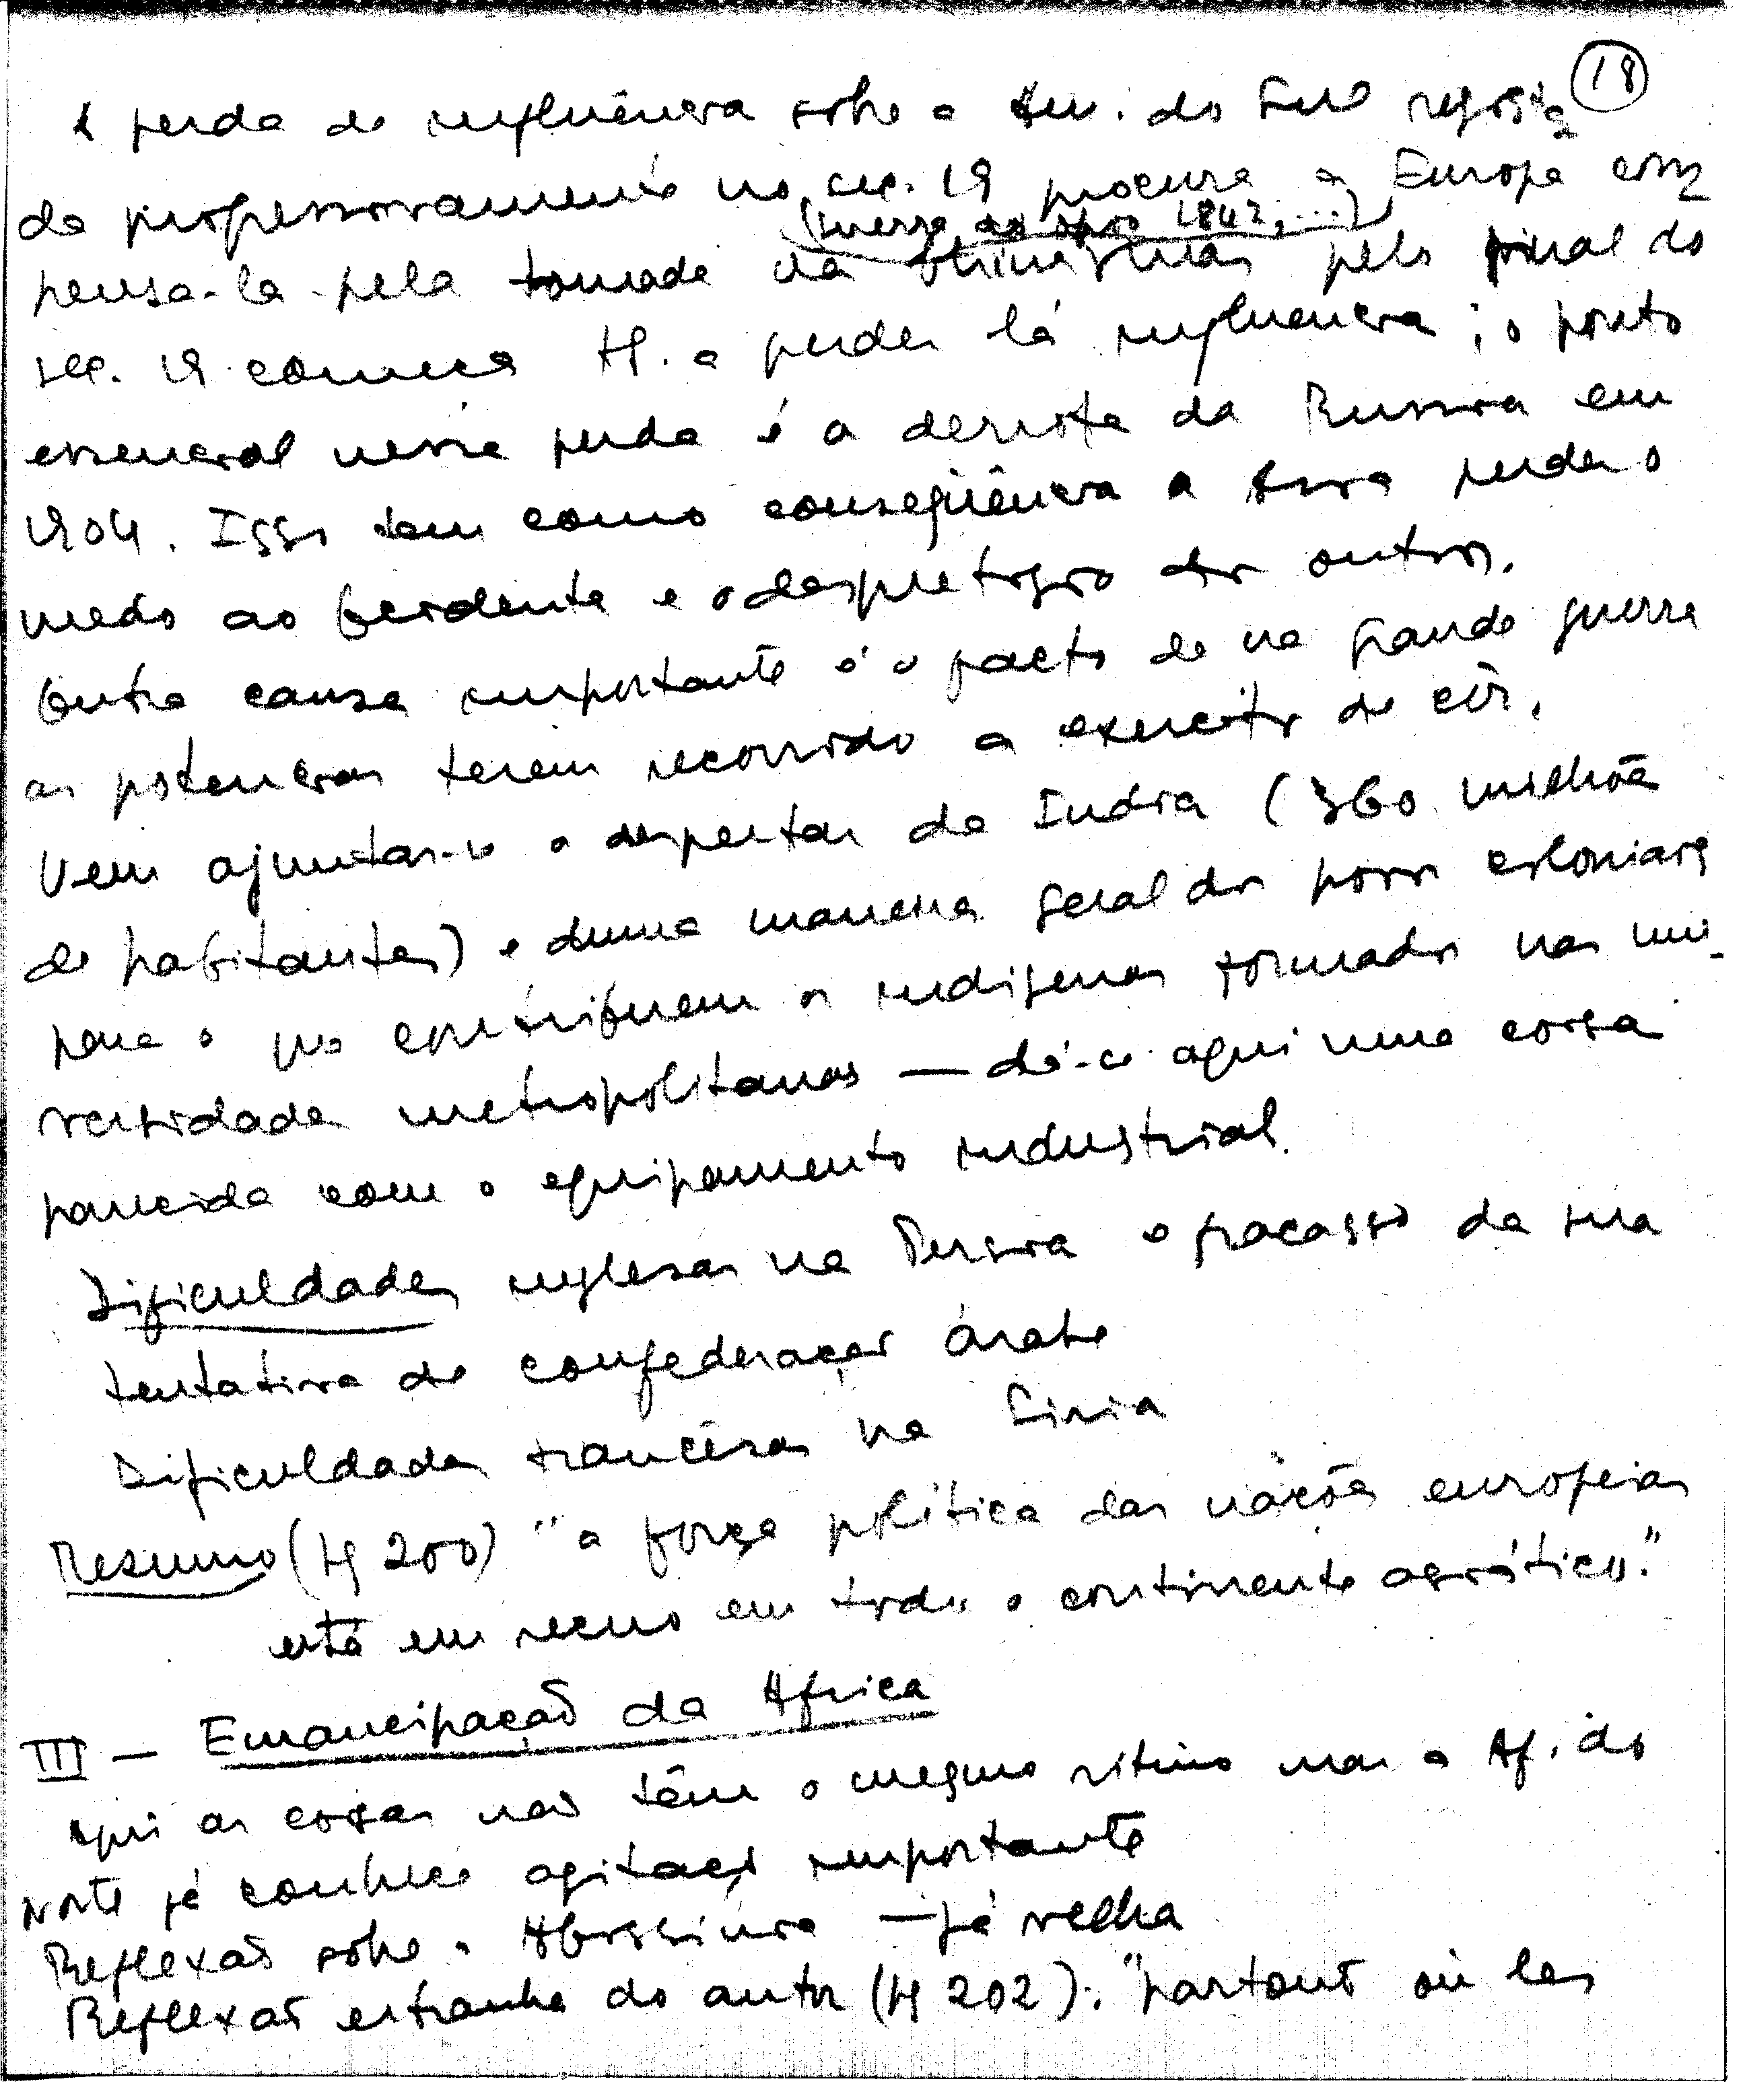 18
A perda de influência sobre a Am. do Sul regista
da progressivamente no sec. 19 procura a Europa com
(Guerra do ópio 1842, ...)
pensa-la pela tomada na China mas pelo final do
sec. 19 começa H. a perder lá influencia; o ponto
essencial nessa perda é a derrota da Russia em
1904. Isso tem como conseqüência a Asia perder o
medo ao Ocidente e o desprestigio dos outros.
Outra causa importante é o facto de na grande guerra
as potencias terem recorrido a exercitos de côr.
Vem ajuntar-se o despertar da India (360 milhões
de habitantes) e duma maneira geral dos povos coloniais
para o que contribuem os indigenas formados nas uni-
versidades metropolitanas — dá-se aqui uma coisa
parecida com o equipamento industrial.
Dificuldades inglesas na Persia e fracasso da sua
tentativa de confederação árabe
Dificuldades francêsas na Siria
Resumo (H 200) "a força política das nações europeias
está em recuo em todo o continente asiático."
III — Emancipação da Africa
Aqui as coisas não têm o mesmo ritmo mas a Af. do
Norte já conhece agitação importante
Reflexão sobre a Abissínia — já velha
Reflexão estranha do autor (H 202): "partout où les